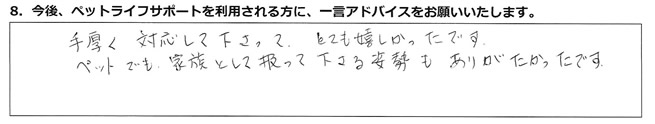 8. 今後、ペットライフサポートを利用される方に、一言アドバイスをお願いいたします。
手厚く 対応して下さって、とても嬉しかったです。
ペットでも、家族として扱って下さる姿勢も ありがたかったです。